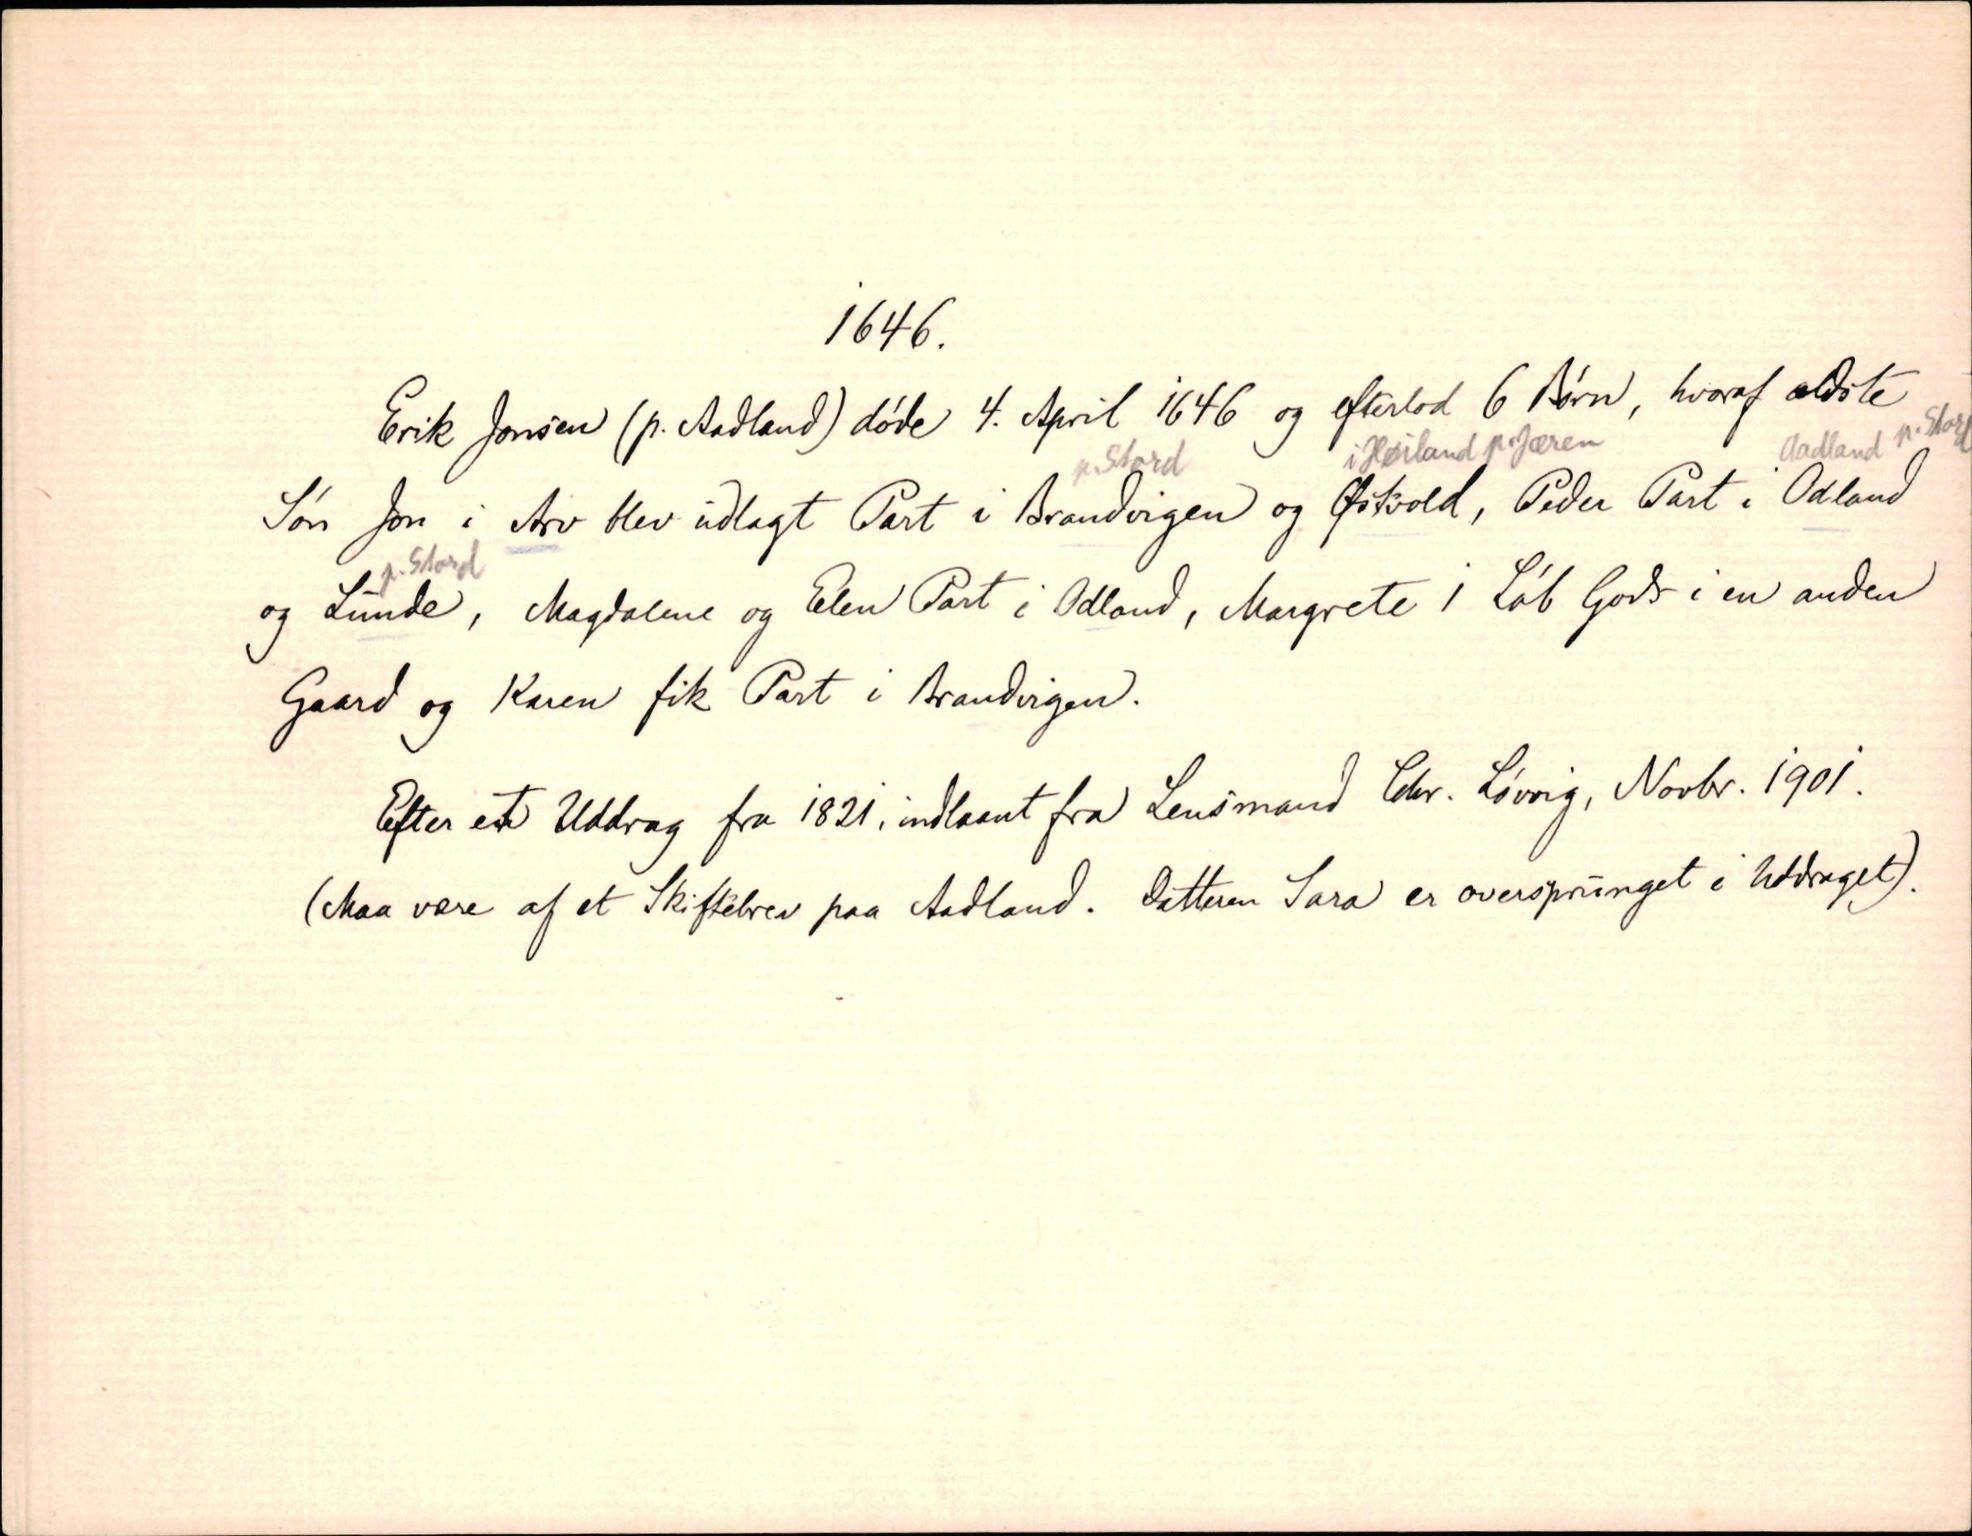 1646.
Erik Jonsen (p. Aadland) døde 4. April 1646 og efterlod 6 Børn, hvoraf ældste
p. Stord i Høiland p. Jæren Aadland p. Stord
Søn Jon i Arv blev udlagt Part i Brandvigen og Østvold, Peder Part i Odland
p. Stord
og Lunde, Magdalene og Elen Part i Odland, Margrete 1 Løb Gods i en anden
Gaard og Karen fik Part i Brandvigen.
Efter et Uddrag fra 1821, indlaant fra Lensmand Chr. Løvvig, Novbr. 1901.
(Maa være af et Skiftebrev paa Aadland. Datteren Sara er oversprunget i Uddraget).